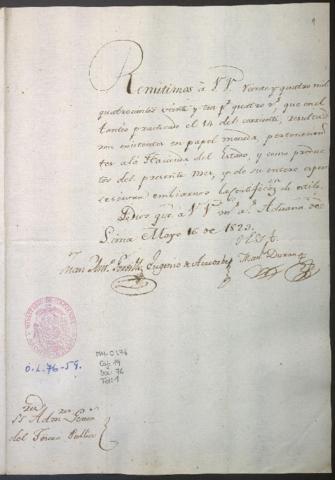 1
Remitimos à V. V. y quatro mil
quatrocientos veinte y tres p.s quatro r.s que en el
tanteo practicado el 14 del corriente, resultaron
existentes en papel moneda, pertenecientes
à la Hacienda del Estado, y como productos
del presente mes, y de su entero esperamos
se sirvan embiarnos la certificac.n de estilo.
Dios gue. à V. V. m.s a.s Aduana de
Lima Mayo 16 de 1823.
Man. Ant.o Eugenio de Man.l
O.L. 76-59.
MH-OL76
Caj. 19
Doc: 76
Fol: 1
S.S. Adm.res
del Tesoro Publico